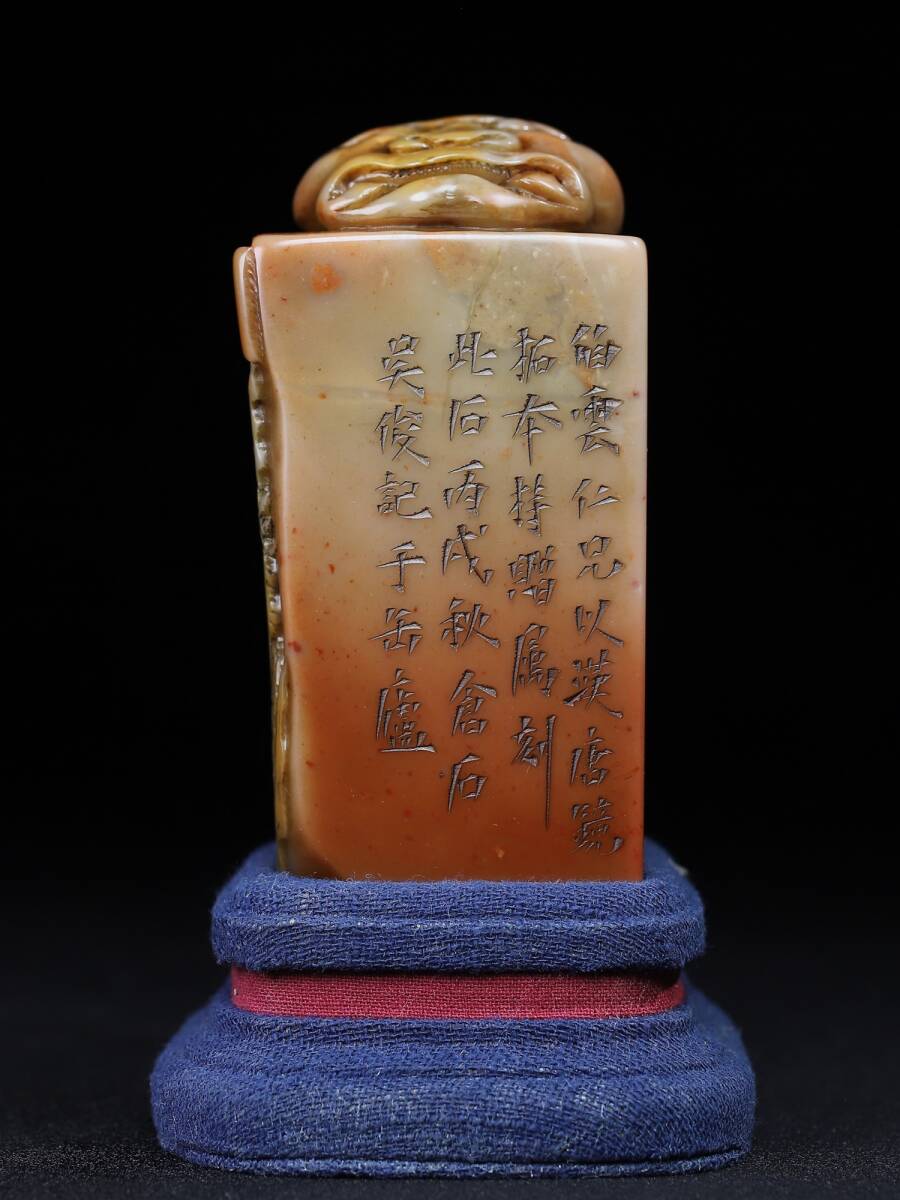 雲仁兄以漢唐
拓本持贈属刻
此石丙戌秋倉石
吳俊記于缶廬